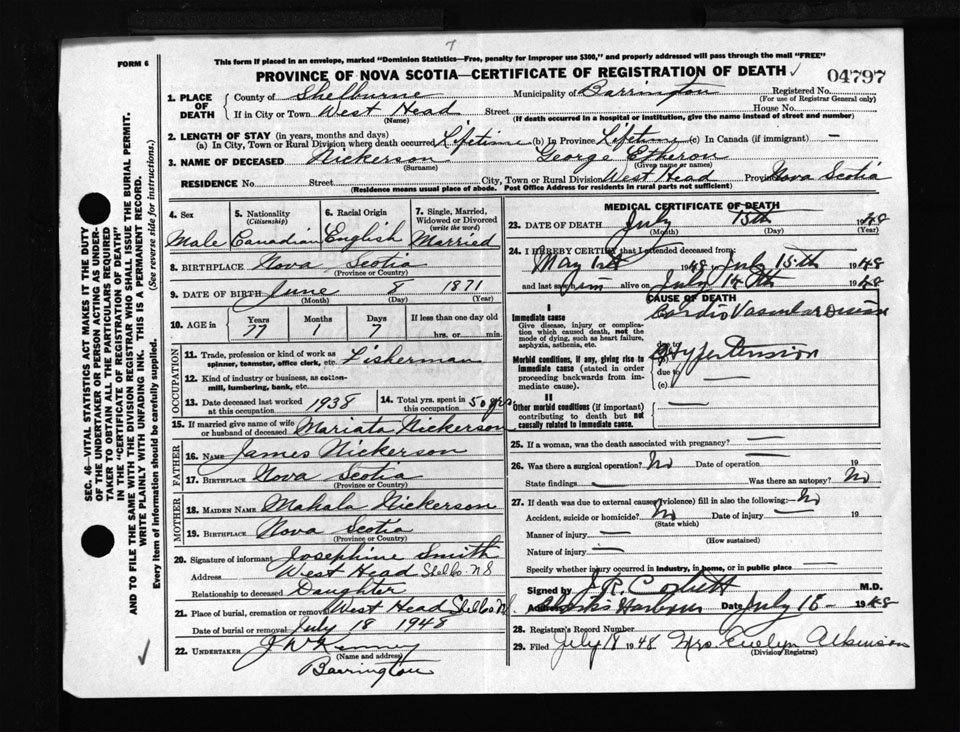 FORM 6
This form if placed in an envelope, marked "Dominion Statistics—Free, penalty for improper use $300," and properly addressed will pass through the mail "FREE"
PROVINCE OF NOVA SCOTIA—CERTIFICATE OF REGISTRATION OF DEATH ✓ 04797
1. PLACE OF DEATH County of Shelburne Municipality of Barrington Registered No.
(For use of Registrar General only)
If in City or Town West Head Street House No.
(Name) (If death occurred in a hospital or institution, give the name instead of street and number)
2. LENGTH OF STAY (in years, months and days)
(a) In City, Town or Rural Division where death occurred Lifetime (b) In Province Lifetime (c) In Canada (if immigrant) —
3. NAME OF DECEASED Nickerson George
(Surname) (Given name or names)
RESIDENCE No. Street City, Town or Rural Division West Head Province Nova Scotia
(Residence means usual place of abode. Post Office Address for residents in rural parts not sufficient)
4. Sex 5. Nationality (Citizenship) 6. Racial Origin 7. Single, Married, Widowed or Divorced (write the word)
Male Canadian English Married
8. BIRTHPLACE Nova Scotia
(Province or Country)
9. DATE OF BIRTH June 8 1871
(Month) (Day) (Year)
10. AGE in Years Months Days If less than one day
77 1 7 hrs. or min.
OCCUPATION
11. Trade, profession or kind of work as spinner, teamster, office clerk, etc. Fisherman
12. Kind of industry or business, as cotton-mill, lumbering, bank, etc.
13. Date deceased last worked at this occupation 1938 14. Total yrs. spent in this occupation 50 yrs
15. If married give name of wife or husband of deceased Mariata Nickerson
FATHER
16. NAME James Nickerson
17. BIRTHPLACE Nova Scotia
(Province or Country)
MOTHER
18. MAIDEN NAME Mahala Nickerson
19. BIRTHPLACE Nova Scotia
(Province or Country)
20. Signature of informant Josephine Smith
Address West Head Shelbo. N S
Relationship to deceased Daughter
21. Place of burial, cremation or removal West Head Shelbo N S.
Date of burial or removal July 18 1948
22. UNDERTAKER J W Kenney
(Name and address)
Barrington
MEDICAL CERTIFICATE OF DEATH
23. DATE OF DEATH July 15th 1948
(Month) (Day) (Year)
24. I HEREBY CERTIFY that I attended deceased from:
May 1st 1948 to July 15th 1948
and last saw him alive on July 14th 1948
CAUSE OF DEATH
I
Immediate cause Cardio Vascular Disease
Give disease, injury or complication which caused death, not the mode of dying, such as heart failure, asphyxia, asthenia, etc.
Morbid conditions, if any, giving rise to immediate cause (stated in order proceeding backwards from immediate cause).
(b) Hypertension
due to
(c) —
II
Other morbid conditions (if important) contributing to death but not causally related to immediate cause. —
25. If a woman, was the death associated with pregnancy? —
26. Was there a surgical operation? No Date of operation — 19
State findings — Was there an autopsy? No
27. If death was due to external causes (violence) fill in also the following:— No
Accident, suicide or homicide? No Date of injury — 19
(State which)
Manner of injury —
(How sustained)
Nature of injury —
Specify whether injury occurred in industry, in home, or in public place —
Signed by M.D.
Address Clark's Harbour Date July 18 1948
28. Registrar's Record Number
29. Filed July 18 1948 Mrs. Evelyn Atkinson
(Division Registrar)
SEC. 46—VITAL STATISTICS ACT MAKES IT THE DUTY
OF THE UNDERTAKER OR PERSON ACTING AS UNDER-
TAKER TO OBTAIN ALL THE PARTICULARS REQUIRED
IN THE "CERTIFICATE OF REGISTRATION OF DEATH"
AND TO FILE THE SAME WITH THE DIVISION REGISTRAR WHO SHALL ISSUE THE BURIAL PERMIT.
WRITE PLAINLY WITH UNFADING INK. THIS IS A PERMANENT RECORD.
Every item of information should be carefully supplied. (See reverse side for instructions.)